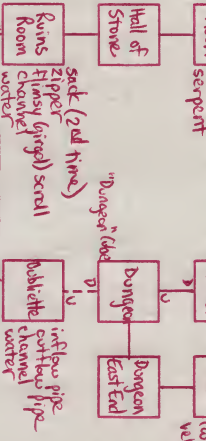 serpent
Hall of
Stone
Ruins
Room
sack (2nd time)
zipper
flimsy (girgol) scroll
channel
water
D
U
"Dungeon" Cube
Dungeon
Dungeon
East End
D
U
Oubliette
inflow pipe
outflow pipe
channel
water